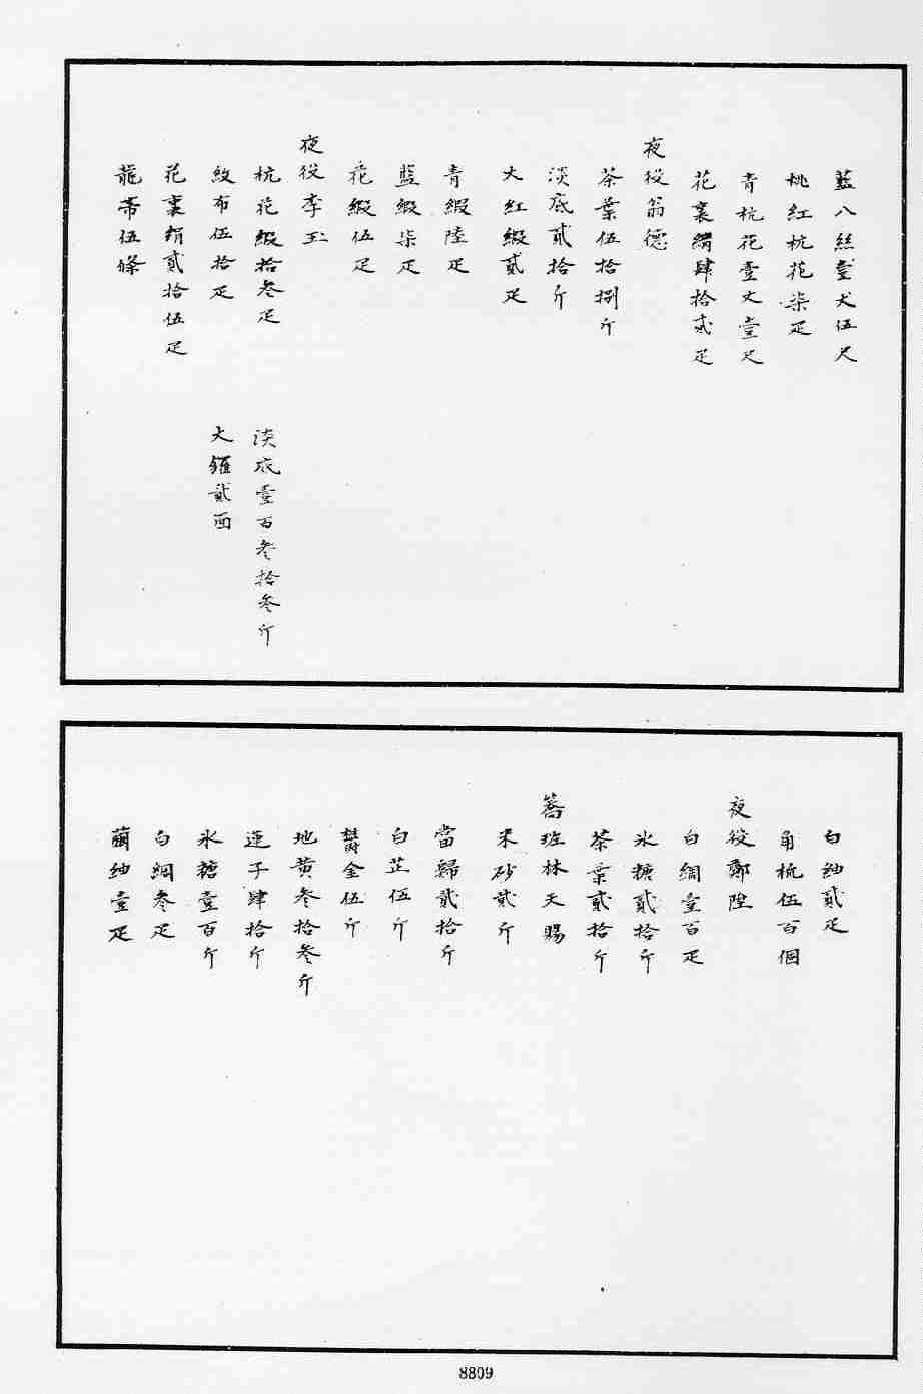 藍八絲壹丈伍尺
桃紅杭花柒疋
青杭花壹丈壹尺
花裏綢肆拾貳疋
夜役翁德
茶葉伍拾捌斤
淡底貳拾斤
大紅緞貳疋
青緞陸疋
藍緞柒疋
花緞伍疋
夜役李玉
杭花緞拾叁疋 淡底壹百叁拾叁斤
紋布伍拾疋 大鑼貳面
花裏絹貳拾伍疋
龍帶伍條
白紬貳疋
角梳伍百個
夜役鄭隍
白綢壹百疋
氷糖貳拾斤
茶葉貳拾斤
舊班林天賜
朱砂貳斤
當歸貳拾斤
白芷伍斤
鬱金伍斤
地黄叁拾叁斤
蓮子肆拾斤
氷糖壹百斤
白綢叁疋
繭紬壹疋
8809